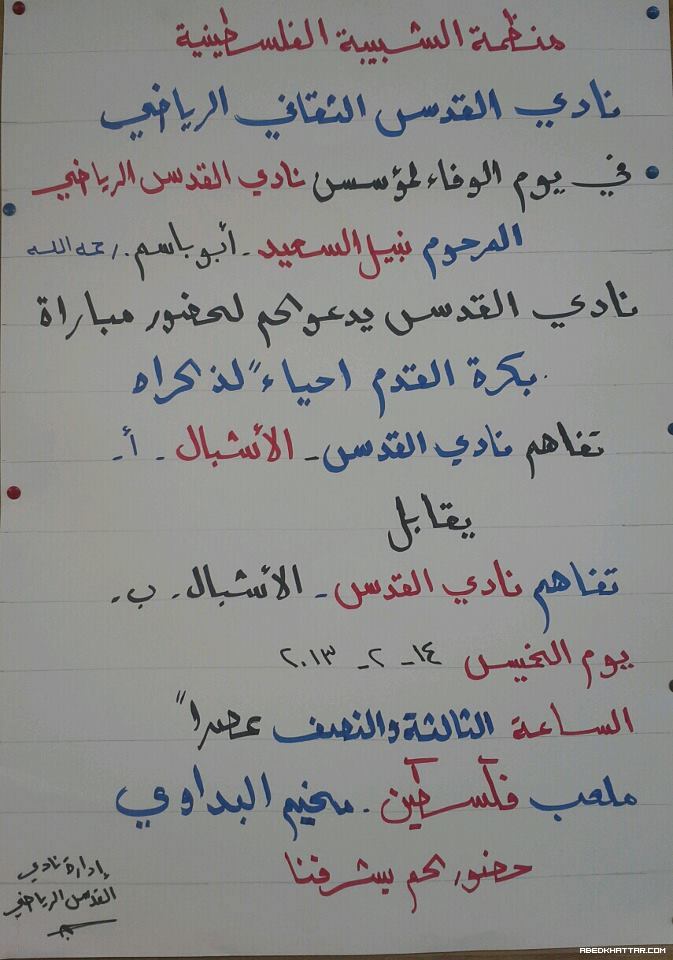 منظمة الشبيبة الفلسطينية
نادي القدس الثقافي الرياضي
في يوم الوفاء لمؤسس نادي القدس الرياضي
المرحوم نبيل السعيد - أبو باسم . رحمه الله
نادي القدس يدعوكم لحضور مباراة
بكرة القدم احياءً لذكراه
تفاهم نادي القدس - الأشبال - أ -
يقابل
تفاهم نادي القدس - الأشبال - ب -
يوم الخميس ١٤ - ٢ - ٢٠١٣
الساعة الثالثة والنصف عصراً
ملعب فلسطين - مخيم البداوي
حضوركم يشرفنا
إدارة نادي
القدس الرياضي
ABEDKHATTAR.COM